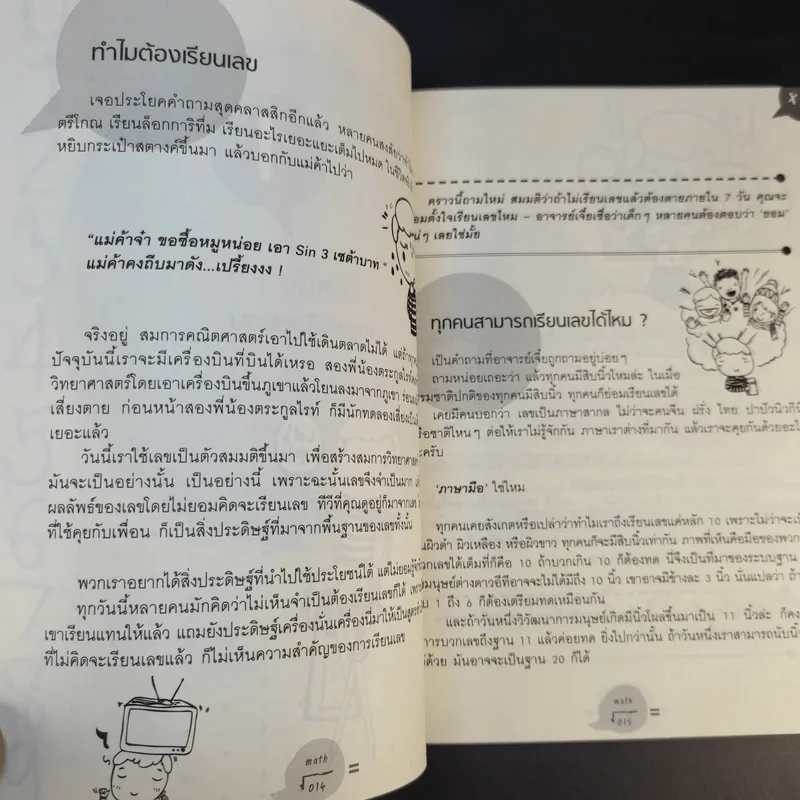 ทำไมต้องเรียนเลข
เจอประโยคคำถามสุดคลาสสิกอีกแล้ว หลายคนสงสัยว่า
ตรีโกณ เรียนล็อกการิทึ่ม เรียนอะไรเยอะแยะเต็มไปหมด ในชีวิต
หยิบกระเป๋าสตางค์ขึ้นมา แล้วบอกกับแม่ค้าไปว่า
"แม่ค้าจ๋า ขอซื้อหมูหน่อย เอา Sin 3 เซต้าบาท"
แม่ค้าคงถีบมาดัง...เปรี้ยงงง !
จริงอยู่ สมการคณิตศาสตร์เอาไปใช้เดินตลาดไม่ได้ แต่ถ้า
ปัจจุบันนี้เราจะมีเครื่องบินที่บินได้เหรอ สองพี่น้องตระกูลไรท์
วิทยาศาสตร์โดยเอาเครื่องบินขึ้นภูเขาแล้วโยนลงมาจากภูเขา
เสี่ยงตาย ก่อนหน้าสองพี่น้องตระกูลไรท์ ก็มีนักทดลองเสี่ยง
เยอะแล้ว
วันนี้เราใช้เลขเป็นตัวสมมติขึ้นมา เพื่อสร้างสมการวิทยาศาสตร์
มันจะเป็นอย่างนั้น เป็นอย่างนี้ เพราะฉะนั้นเลขจึงจำเป็นมาก
ผลลัพธ์ของเลขโดยไม่ยอมคิดจะเรียนเลข ทีวีที่คุณดูอยู่ก็มาจากเลข
ที่ใช้คุยกับเพื่อน ก็เป็นสิ่งประดิษฐ์ที่มาจากพื้นฐานของเลขทั้งนั้น
พวกเราอยากได้สิ่งประดิษฐ์ที่นำไปใช้ประโยชน์ได้ แต่ไม่ยอมรู้
ทุกวันนี้หลายคนมักคิดว่าไม่เห็นจำเป็นต้องเรียนเลขก็ได้
เขาเรียนแทนให้แล้ว แถมยังประดิษฐ์เครื่องนั้นเครื่องนี้มาให้เป็นสูตร
ที่ไม่คิดจะเรียนเลขแล้ว ก็ไม่เห็นความสำคัญของการเรียนเลข
math
014 =
X
คราวนี้ถามใหม่ สมมติว่าถ้าไม่เรียนเลขแล้วต้องตายภายใน 7 วัน คุณจะ
อมตั้งใจเรียนเลขไหม – อาจารย์เจี๋ยเชื่อว่าเด็กๆ หลายคนต้องตอบว่า 'ยอม'
น่ๆ เลยใช่มั้ย
ทุกคนสามารถเรียนเลขได้ไหม ?
เป็นคำถามที่อาจารย์เจี๋ยถูกถามอยู่บ่อยๆ
ถามหน่อยเถอะว่า แล้วทุกคนมีสิบนิ้วไหมล่ะ ในเมื่อ
รมชาติปกติของทุกคนมีสิบนิ้ว ทุกคนก็ย่อมเรียนเลขได้
เคยมีคนบอกว่า เลขเป็นภาษาสากล ไม่ว่าจะคนจีน ฝรั่ง ไทย ปาปัวนิวกินี
รือชาติไหนๆ ต่อให้เราไม่รู้จักกัน ภาษาเราต่างที่มากัน แล้วเราจะคุยกันด้วยอะไ
ะครับ
'ภาษามือ' ใช่ไหม
ทุกคนเคยสังเกตหรือเปล่าว่าทำไมเราถึงเรียนเลขแค่หลัก 10 เพราะไม่ว่าจะเ
นผิวดำ ผิวเหลือง หรือผิวขาว ทุกคนก็จะมีสิบนิ้วเท่ากัน ภาพที่เห็นคือมือของพวก
วกเลขได้เต็มที่ก็คือ 10 ถ้าบวกเกิน 10 ก็ต้องทด นี่จึงเป็นที่มาของระบบฐาน
มนุษย์ต่างดาวอีทีอาจจะไม่ได้มีถึง 10 นิ้ว เขาอาจมีข้างละ 3 นิ้ว นั่นแปลว่า ถ้า
น 1 ถึง 6 ก็ต้องเตรียมทดเหมือนกัน
และถ้าวันหนึ่งวิวัฒนาการมนุษย์เกิดมีนิ้วโผล่ขึ้นมาเป็น 11 นิ้วล่ะ ก็คง
การบวกเลขถึงฐาน 11 แล้วค่อยทด ยิ่งไปกว่านั้น ถ้าวันหนึ่งเราสามารถนับนิ้ว
ด้วย มันอาจจะเป็นฐาน 20 ก็ได้
math
015 =